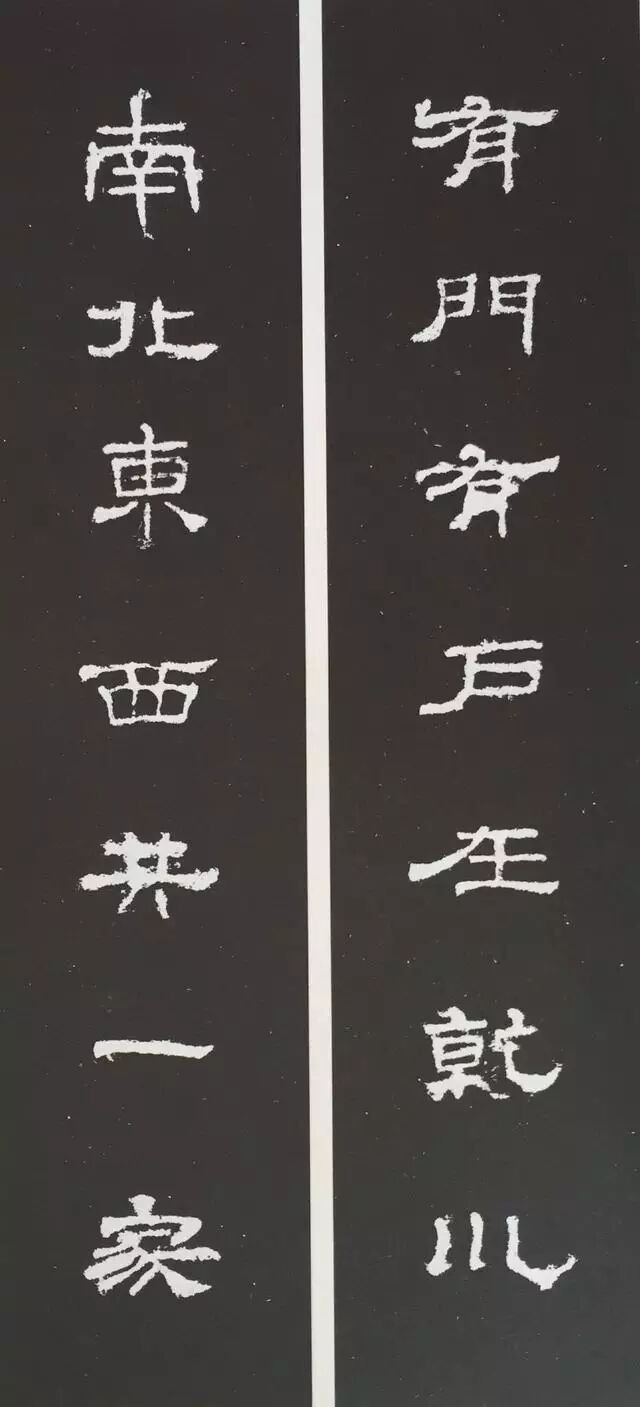 有門有戶在乾川
南北東西共一家